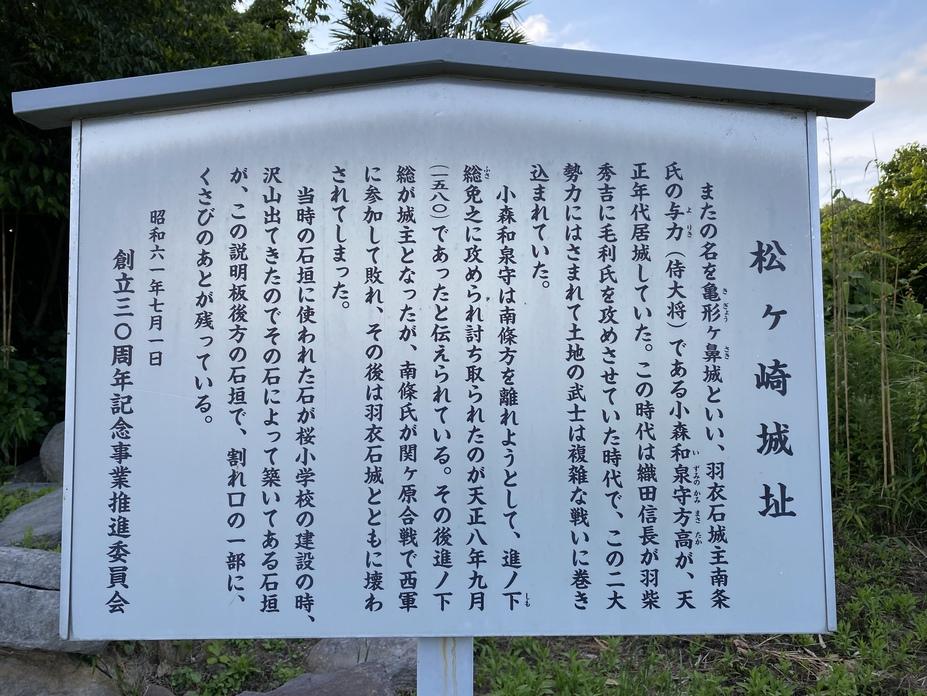 松ヶ崎城址
またの名を亀形ヶ鼻城といい、羽衣石城主南条
氏の与力(侍大将)である小森和泉守方高が、天
正年代居城していた。この時代は織田信長が羽柴
秀吉に毛利氏を攻めさせていた時代で、この二大
勢力にはさまれて土地の武士は複雑な戦いに巻き
込まれていた。
小森和泉守は南條方を離れようとして、進ノ下
総免之に攻められ討ち取られたのが天正八年九月
(一五八〇)であったと伝えられている。その後進ノ下
総が城主となったが、南條氏が関ヶ原合戦で西軍
に参加して敗れ、その後は羽衣石城とともに壊わ
されてしまった。
当時の石垣に使われた石が桜小学校の建設の時、
沢山出てきたのでその石によって築いてある石垣
が、この説明板後方の石垣で、割れ口の一部に、
くさびのあとが残っている。
昭和六一年七月一日
創立三〇周年記念事業推進委員会